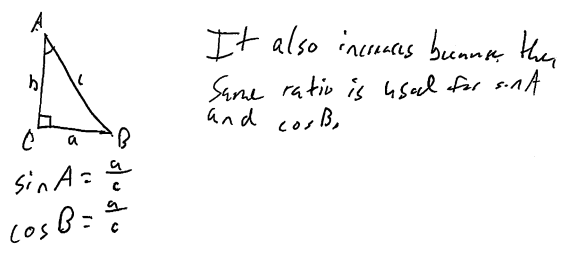 A
b
c
C
a
B
sin A = a/c
cos B = a/c
It also increases because the
same ratio is used for sin A
and cos B.